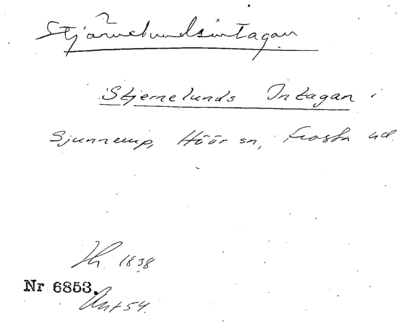 Stjärnelundsintagan
Stjernelunds Intagan i
Sjunnerup, Höör sn, Frosta hd.
Jh. 1838
Nr 6853.
Ant 54.